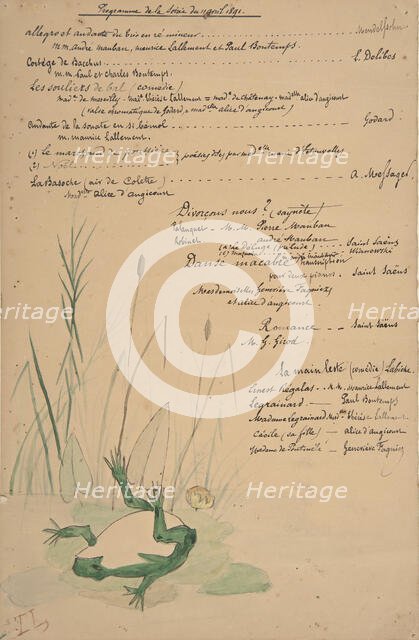 Programme de la Soirée du 11 avril 1891.
allegro et andante du trio en ré mineur Mendelssohn
m.m. andré Mauban, maurice Lallement et Paul Bontemps.
Cortège de Bacchus L. Delibes
m.m. Paul et Charles Bontemps.
Les souliers de bal (comédie)
mad. de marcilly - mad. Thérèse Lallement = mad. de Châtenay - mad.elle alice d'angicourt
(valse chromatique de Godard, mad.elle alice d'angicourt)
andante de la sonate en si bémol Godard
m. maurice Lallement.
(1) Le
(2) Noël poésies dites par mad.elle
La Basoche (air de Colette) A. Messager
mad.elle alice d'angicourt
Divorçons nous? (saynète)
M.M. Pierre Mauban
Robinet andré Mauban
(1) Le Déluge (prélude) Saint Saëns
(2) Wianowski
Danse macabre Saint Saëns
pour deux pianos.
Mesdemoiselles Geneviève Faguiez
et alice d'angicourt
Romance Saint Saëns
M. G. Girod
La main leste (comédie) Labiche.
Ernest Regalas - M.M. Maurice Lallement
Legrainard - Paul Bontemps
Madame Legrainard Mad.elle Thérèse Lallement
Cécile (sa fille) - alice d'angicourt
Madame de Pontmêlé - Geneviève Faguiez
Heritage
Images
Heritage
Images
Heritage
Heritage
Images
Heritage
Images
Heritage